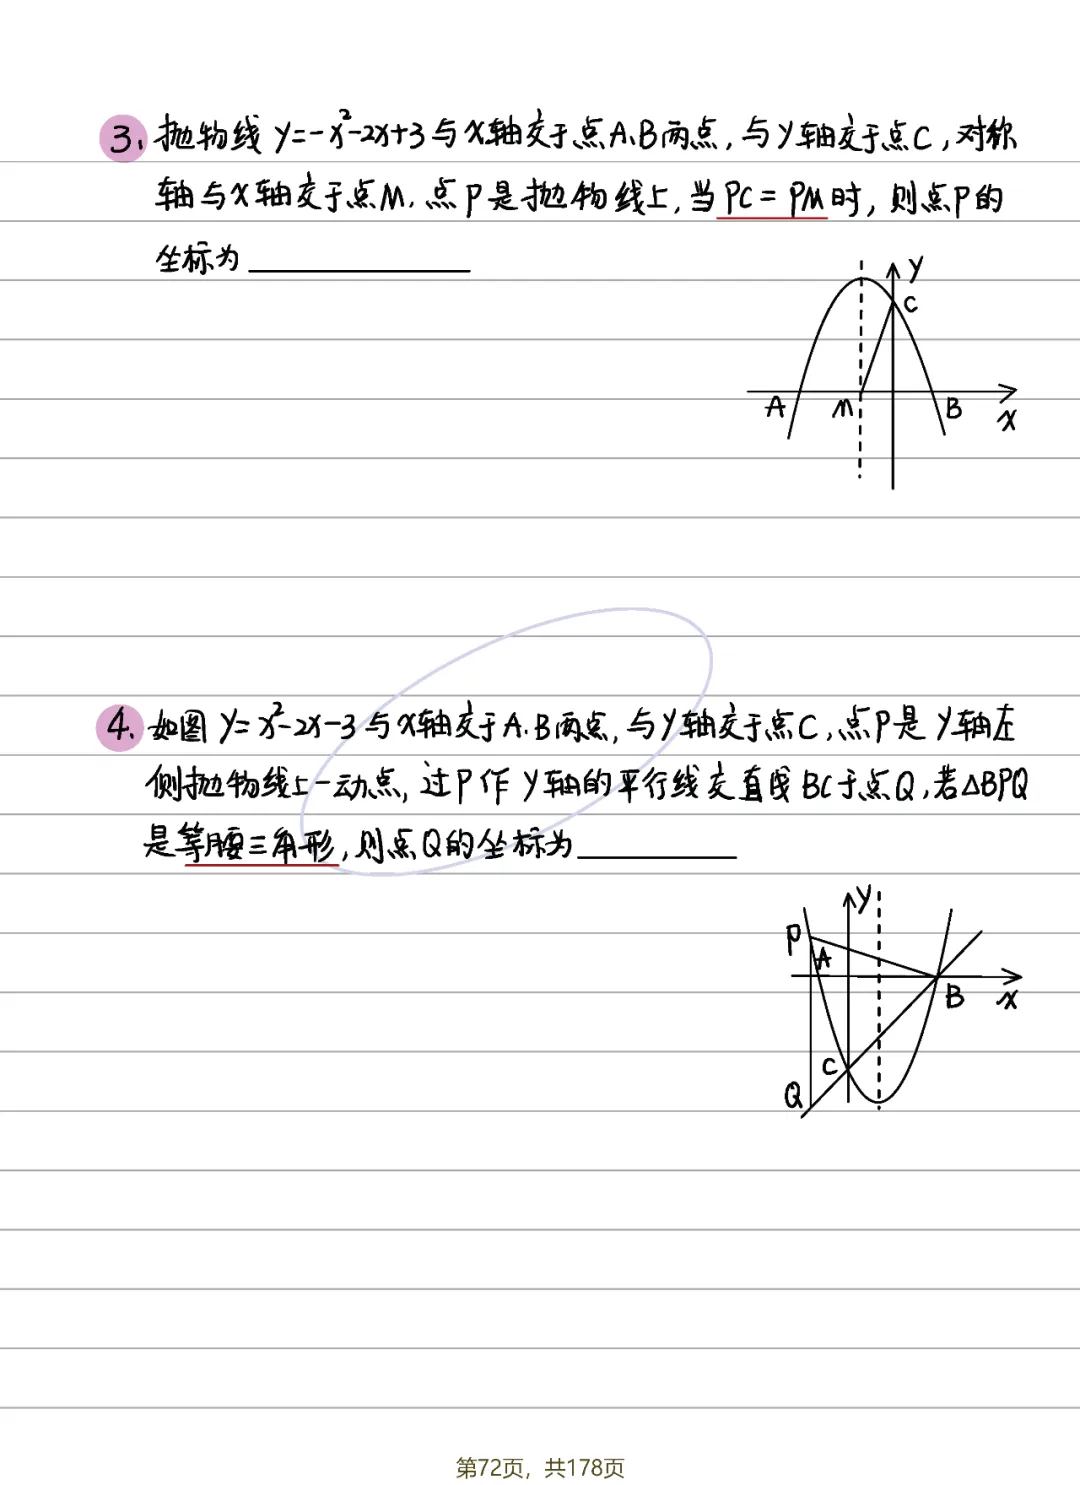 3. 抛物线 y=-x²-2x+3与x轴交于点A、B两点,与y轴交于点C,对称
轴与x轴交于点M,点P是抛物线上,当PC=PM时,则点P的
坐标为
y
C
A
M
B
x
4. 如图 y=x²-2x-3与x轴交于A.B两点,与y轴交于点C,点P是y轴左
侧抛物线上一动点,过P作y轴的平行线交直线BC于点Q,若△BPQ
是等腰三角形,则点Q的坐标为
y
P
A
B
x
C
Q
第72页，共178页